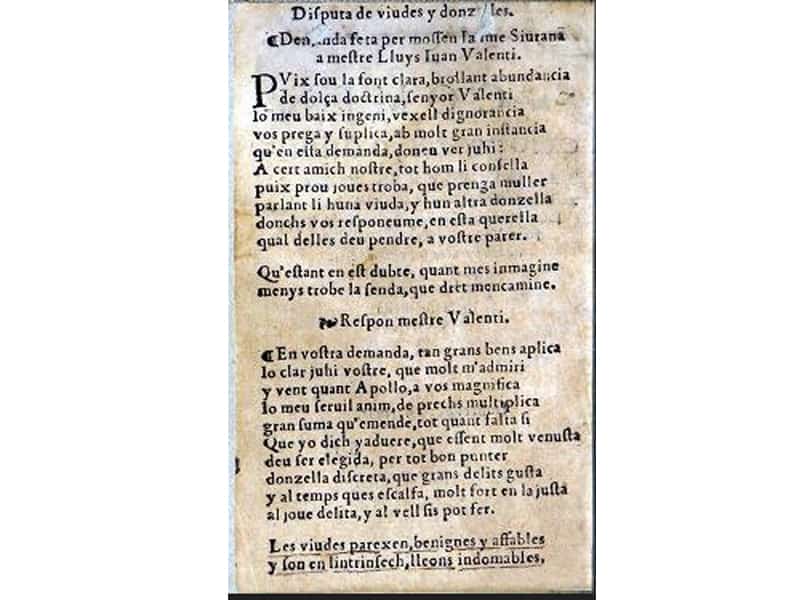 Diſputa de viudes y donzelles.
⸿Demanda feta per moſſen Iaume Siurana
a meſtre Lluys Iuan Valenti.
PVix ſou la font clara, brollant abundancia
de dolça doctrina, ſenyor Valenti
lo meu baix ingeni, vexell dignorancia
vos prega y ſuplica, ab molt gran inſtancia
qu'en eſta demanda, doneu ver juhi:
A cert amich noſtre, tot hom li conſella
puix prou joues troba, que prenga muller
parlant li huna viuda, y hun altra donzella
donchs vos reſponeume, en eſta querella
qual delles deu pendre, a voſtre parer.
Qu'eſtant en eſt dubte, quant mes inmagine
menys trobe la ſenda, que dret mencamine.
❧ Reſpon meſtre Valenti.
⸿En voſtra demanda, tan grans bens aplica
lo clar juhi voſtre, que molt m'admiri
y vent quant Apollo, a vos magnifica
lo meu ſeruil anim, de prechs multiplica
gran ſuma qu'emende, tot quant falta ſi
Que yo dich y aduere, que eſſent molt venuſta
deu ſer elegida, per tot bon punter
donzella diſcreta, que grans delits guſta
y al temps ques eſcalfa, molt fort en la juſta
al joue delita, y al vell ſis pot fer.
Les viudes parexen, benignes y affables
y ſon en lintrinſech, lleons indomables,